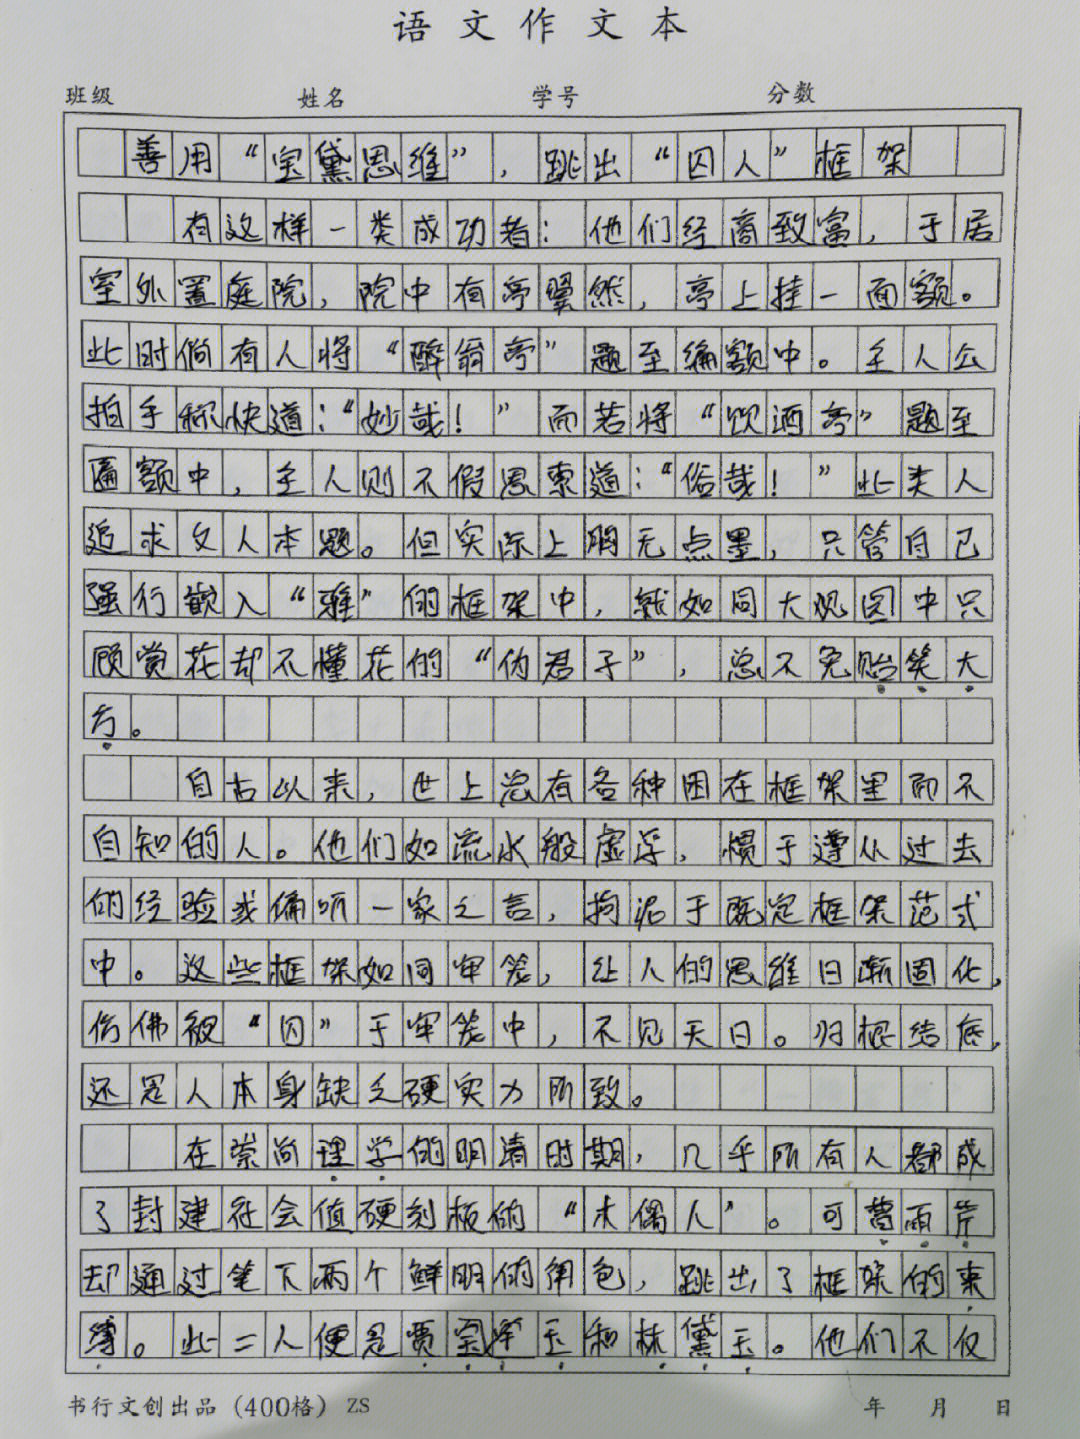 语文作文本
班级 姓名 学号 分数
善用“宝黛思维”，跳出“囚人”框架
有这样一类成功者：他们经商致富，于居
室外置庭院，院中有亭翼然，亭上挂一面额。
此时倘有人将“醉翁亭”题至编额中。主人公
拍手称快道：“妙哉！”而若将“饮酒亭”题至
匾额中，主人则不假思索道：“俗哉！”此类人
追求文人本题。但实际上胸无点墨，只管自己
强行嵌入“雅”的框架中，就如同大观园中只
顾赏花却不懂花的“伪君子”，总不免贻笑大
方。
自古以来，世上总有各种困在框架里而不
自知的人。他们如流水般虚浮，惯于遵从过去
的经验或偏听一家之言，拘泥于既定框架范式
中。这些框架如同牢笼，让人的思维日渐固化，
仿佛被“囚”于牢笼中，不见天日。归根结底，
还是人本身缺乏硬实力所致。
在崇尚理学的明清时期，几乎所有人都成
了封建社会值硬刻板的“木偶人”。可曹雨芹
却通过笔下两个鲜明的角色，跳出了框架的束
缚。此二人便是贾宝玉和林黛玉。他们不仅
书行文创出品（400格）ZS 年 月 日